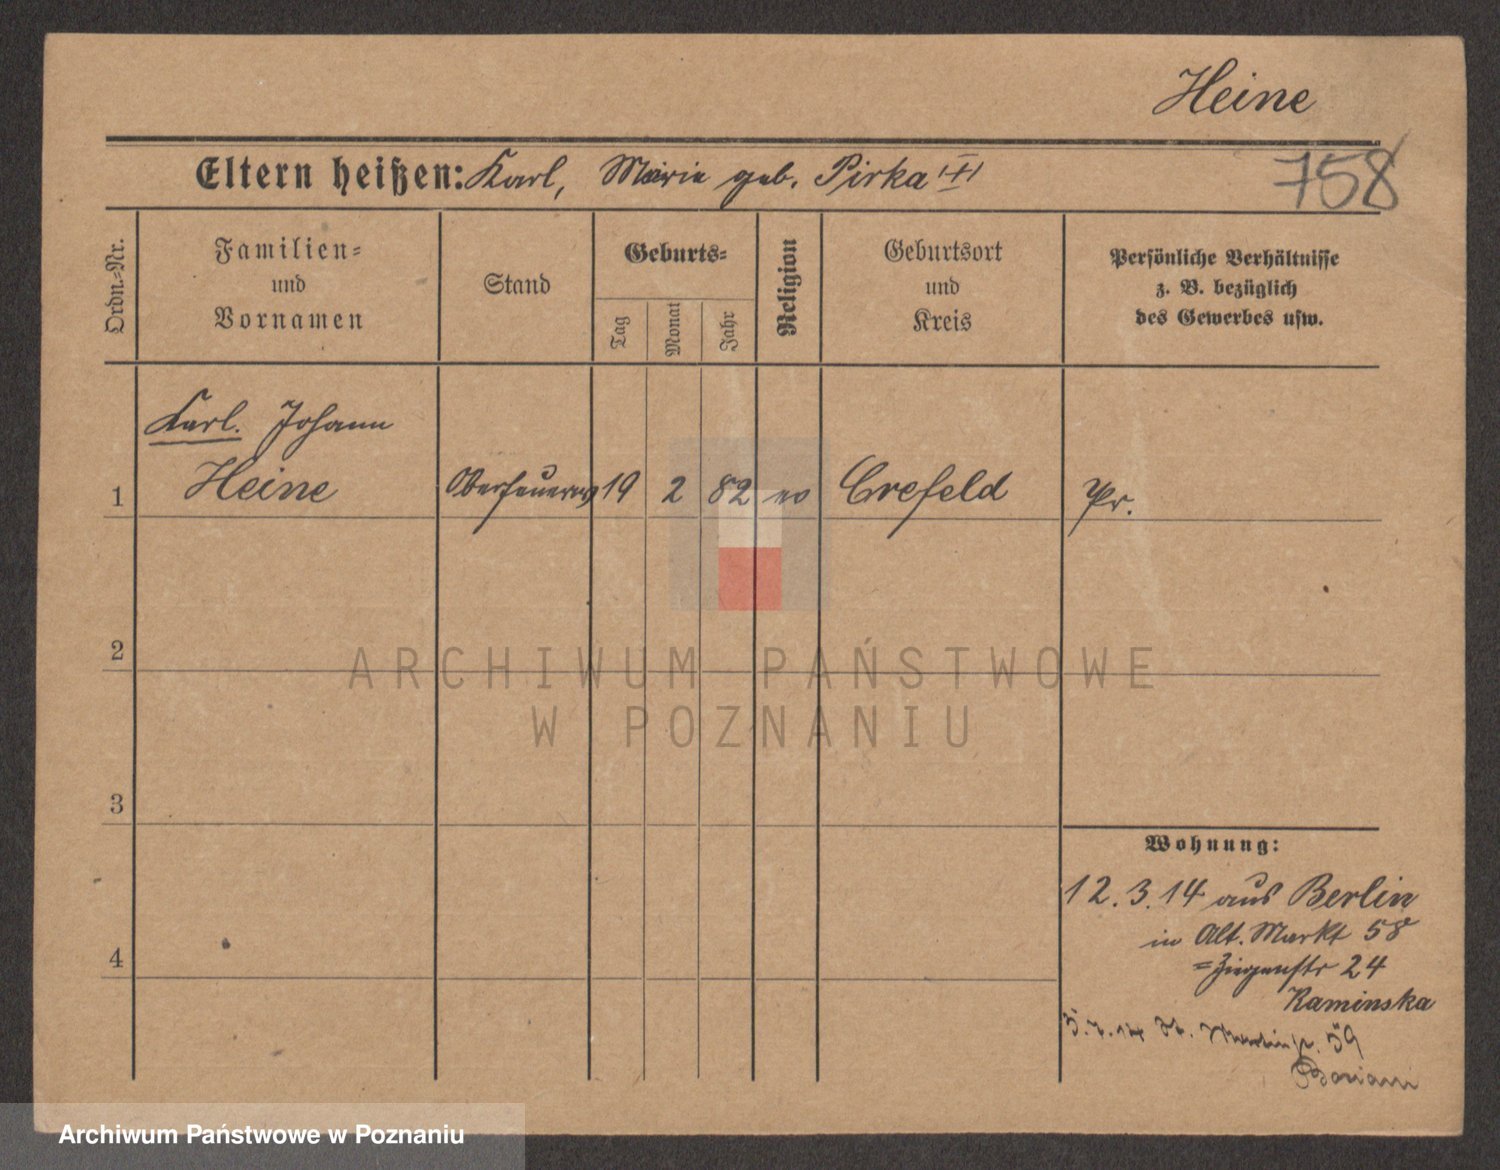 Heine
Eltern heißen: Karl, Marie geb. Pirka
758
Ordn.-Nr.
Familien-
und
Vornamen
Stand
Geburts-
Tag
Monat
Jahr
Religion
Geburtsort
und
Kreis
Persönliche Verhältnisse
z. B. bezüglich
des Gewerbes usw.
Karl. Johann
1 Heine Oberfeuerw 19 2 82 ev Crefeld Pr.
2
ARCHIWUM PAŃSTWOWE
W POZNANIU
3
Wohnung:
12.3.14 aus Berlin
in Alt. Markt 58
4
= Ziegenstr 24
Kaminska
5.7.14 St. Martinstr. 59
Archiwum Państwowe w Poznaniu